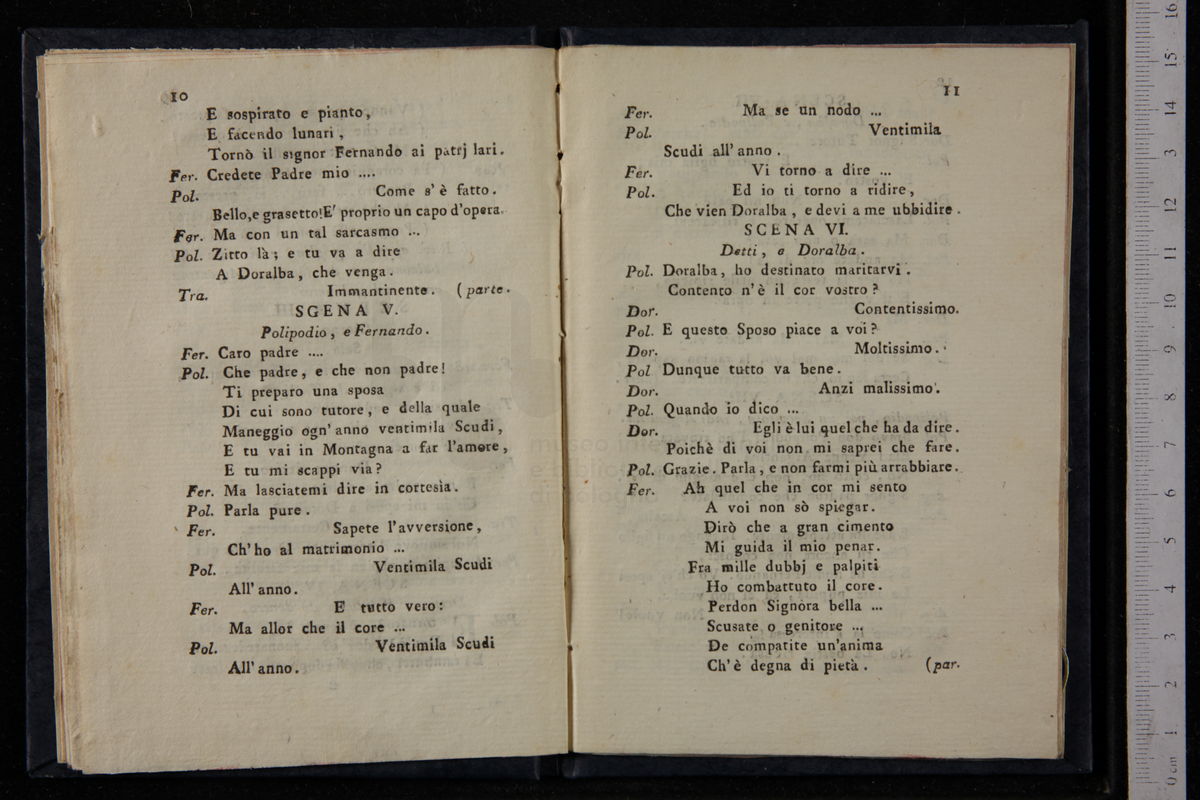 10
E sospirato e pianto,
E facendo lunari,
Tornò il signor Fernando ai patrj lari.
Fer. Credete Padre mio ....
Pol. Come s'è fatto.
Bello, e grasetto! E' proprio un capo d'opera.
Fer. Ma con un tal sarcasmo ...
Pol. Zitto là; e tu va a dire
A Doralba, che venga.
Tra. Immantinente. (parte.
SCENA V.
Polipodio, e Fernando.
Fer. Caro padre ....
Pol. Che padre, e che non padre!
Ti preparo una sposa
Di cui sono tutore, e della quale
Maneggio ogn'anno ventimila Scudi,
E tu vai in Montagna a far l'amore,
E tu mi scappi via?
Fer. Ma lasciatemi dire in cortesia.
Pol. Parla pure.
Fer. Sapete l'avversione,
Ch'ho al matrimonio ...
Pol. Ventimila Scudi
All'anno.
Fer. E tutto vero:
Ma allor che il core ...
Pol. Ventimila Scudi
All'anno.
11
Fer. Ma se un nodo ...
Pol. Ventimila
Scudi all'anno.
Fer. Vi torno a dire ...
Pol. Ed io ti torno a ridire,
Che vien Doralba, e devi a me ubbidire.
SCENA VI.
Detti, e Doralba.
Pol. Doralba, ho destinato maritarvi.
Contento n'è il cor vostro?
Dor. Contentissimo.
Pol. E questo Sposo piace a voi?
Dor. Moltissimo.
Pol Dunque tutto va bene.
Dor. Anzi malissimo.
Pol. Quando io dico ...
Dor. Egli è lui quel che ha da dire.
Poichè di voi non mi saprei che fare.
Pol. Grazie. Parla, e non farmi più arrabbiare.
Fer. Ah quel che in cor mi sento
A voi non sò spiegar.
Dirò che a gran cimento
Mi guida il mio penar.
Fra mille dubbj e palpiti
Ho combattuto il core.
Perdon Signora bella ...
Scusate o genitore ...
De compatite un'anima
Ch'è degna di pietà. (par.